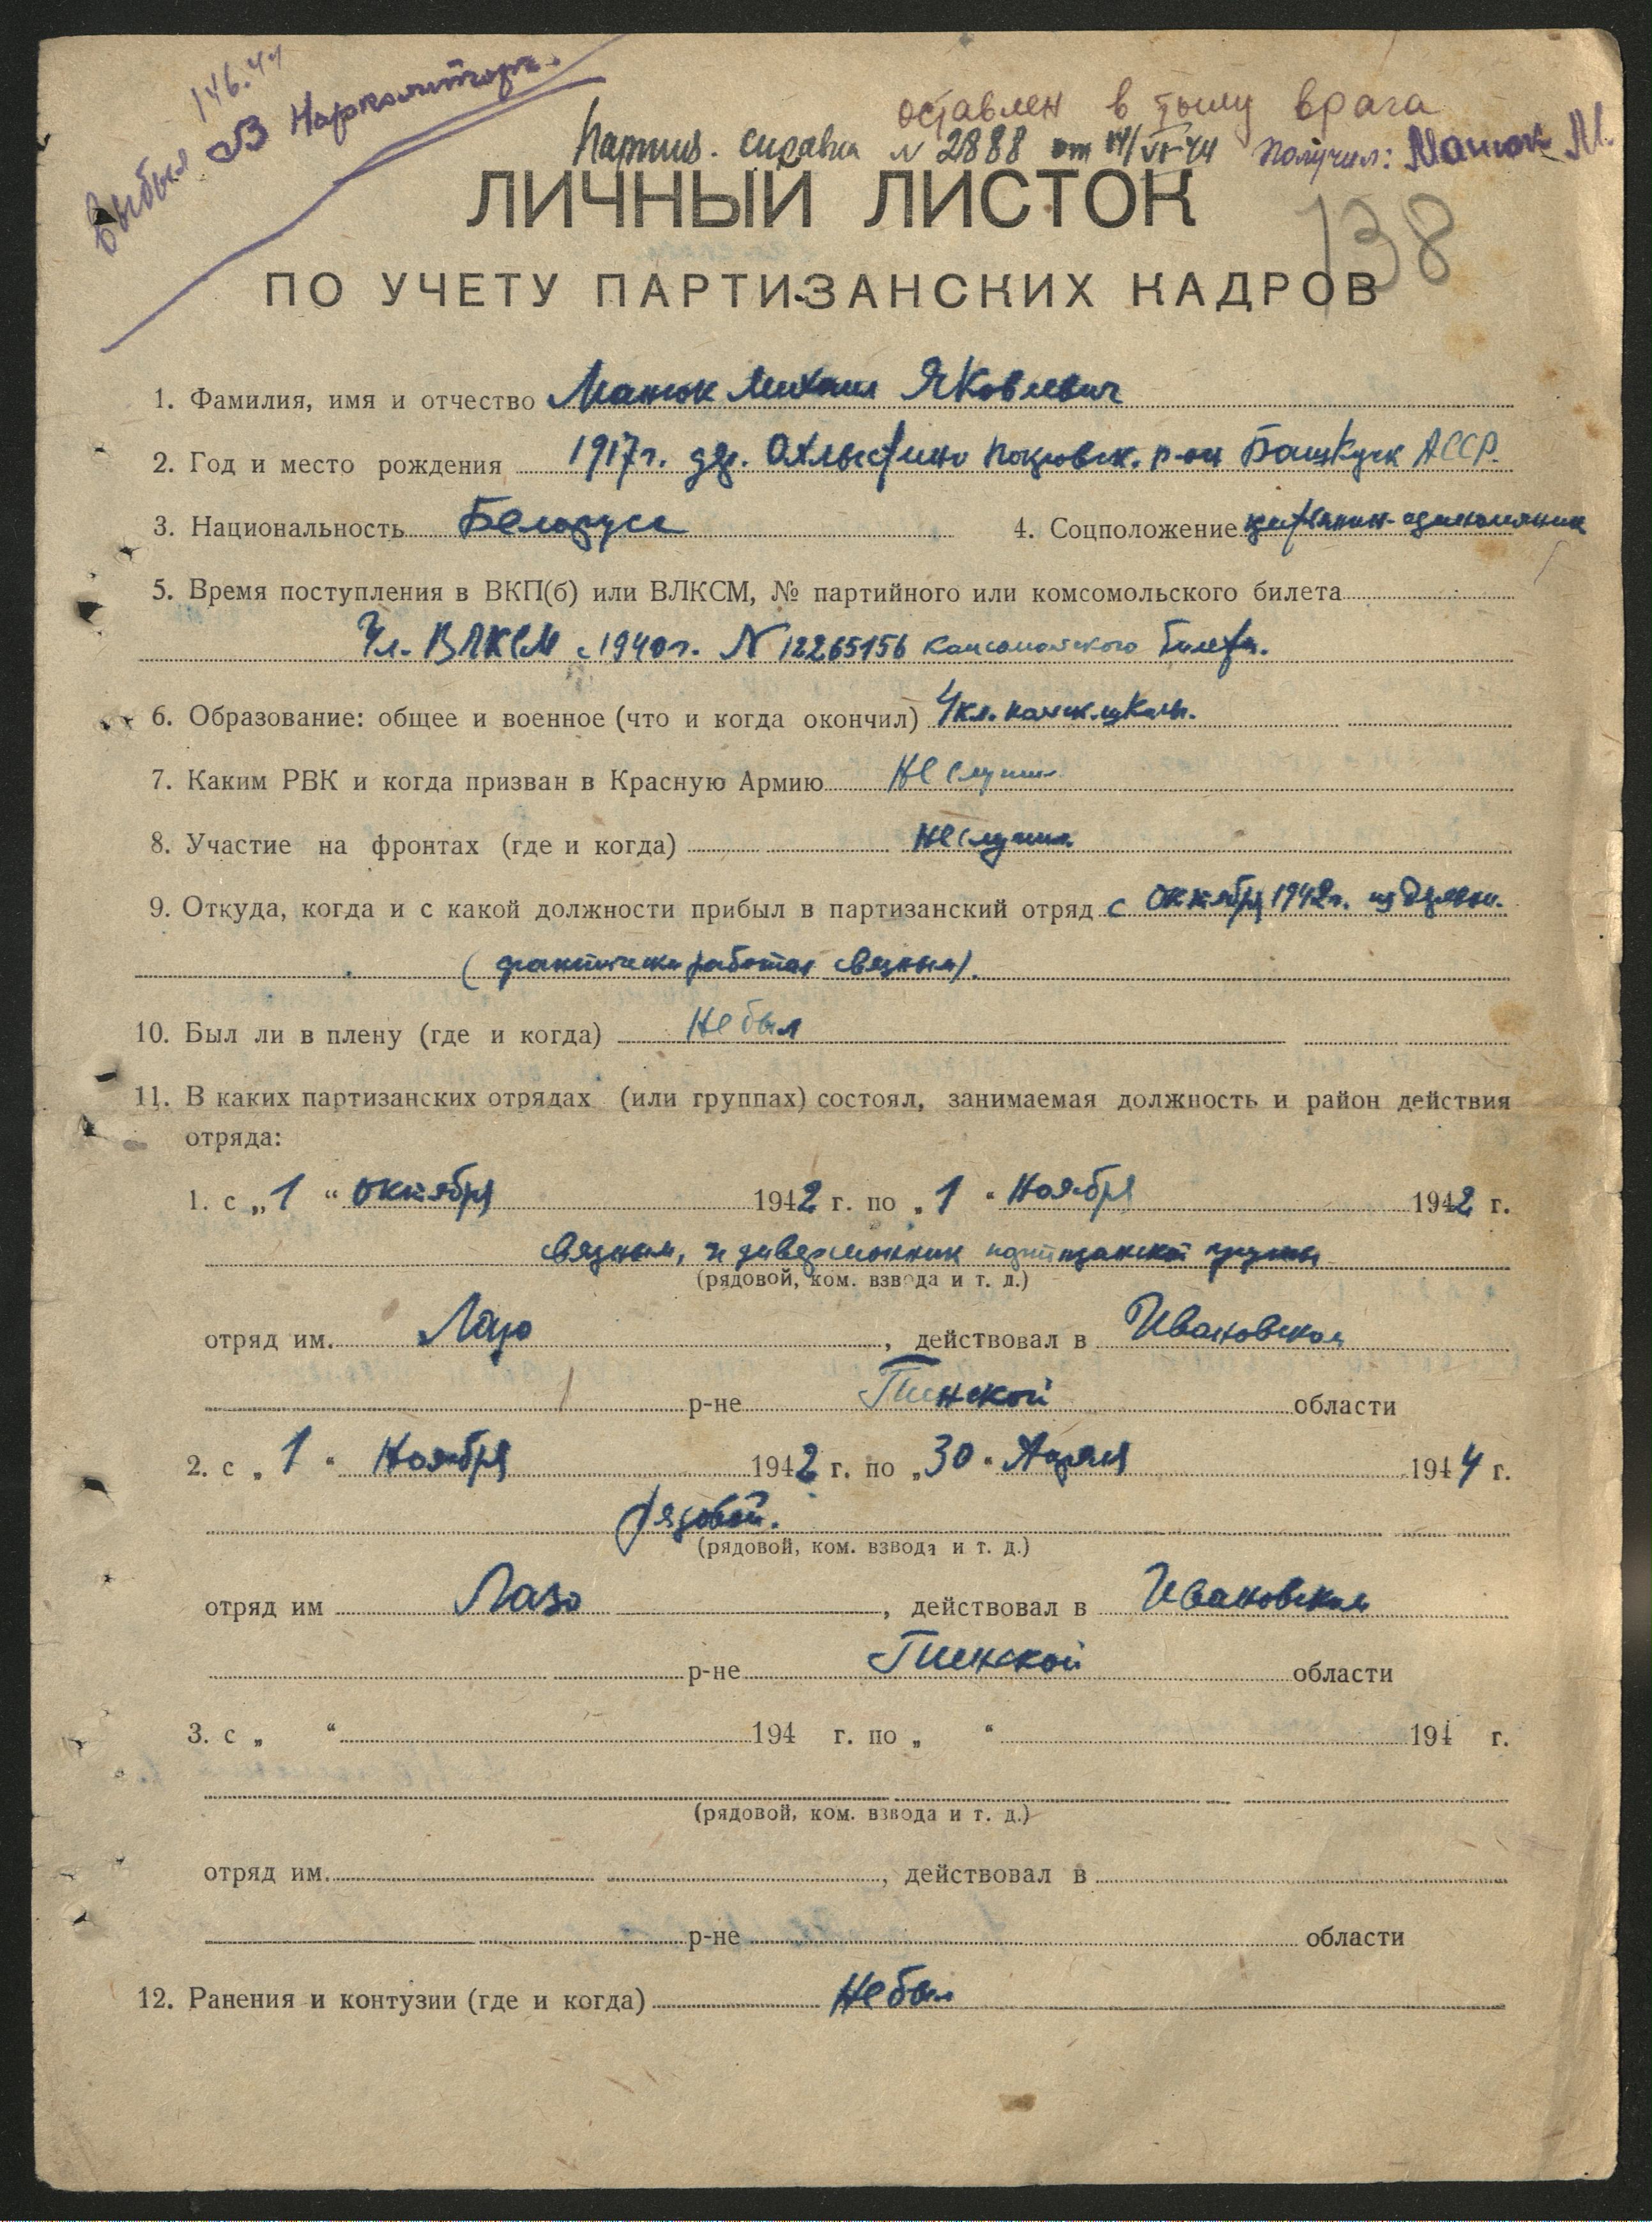 146.44
Выбыл в Наркомторг.
оставлен в тылу врага
Партиз. справка № 2888 от 14/VI-44 Получил: Манюк М.
138
ЛИЧНЫЙ ЛИСТОК
ПО УЧЕТУ ПАРТИЗАНСКИХ КАДРОВ
1. Фамилия, имя и отчество Манюк Михаил Яковлевич
2. Год и место рождения 1917г. дер. Охлыстино р-он Башкирск АССР.
3. Национальность Белорусс 4. Соцположение крестьянин-единоличник
5. Время поступления в ВКП(б) или ВЛКСМ, № партийного или комсомольского билета
Чл. ВЛКСМ с 1940г. N 12265156 комсомольского билета.
6. Образование: общее и военное (что и когда окончил) 4 кл. польск. школы.
7. Каким РВК и когда призван в Красную Армию не служил
8. Участие на фронтах (где и когда) не служил
9. Откуда, когда и с какой должности прибыл в партизанский отряд с октября 1942г. из деревни.
(фактически работал связным).
10. Был ли в плену (где и когда) Не был
11. В каких партизанских отрядах (или группах) состоял, занимаемая должность и район действия
отряда:
1. с „1“ октября 1942 г. по „1“ Ноября 1942 г.
связным, и диверсионник партизанской группы
(рядовой, ком. взвода и т. д.)
отряд им. Лазо, действовал в Ивановском
р-не Пинской области
2. с „1“ Ноября 1942 г. по „30“ Апреля 1944 г.
рядовой.
(рядовой, ком. взвода и т. д.)
отряд им Лазо, действовал в Ивановском
р-не Пинской области
3. с „ “ 194 г. по „ “ 194 г.
(рядовой, ком. взвода и т. д.)
отряд им. , действовал в
р-не области
12. Ранения и контузии (где и когда) Не был